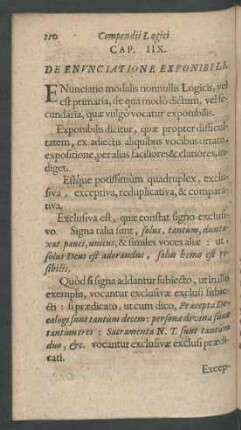 110 Compendii Logici
CAP. IIX.
DE ENVNCIATIONE EXPONIBILI.
ENunciatio modalis nonnullis Logicis, vel
est primaria, de qua modò dictum, vel se-
cundaria, quæ vulgò vocatur exponibilis.
Exponibilis dicitur, quæ propter difficul-
tatem, ex adiectis aliquibus vocibus ortam,
expositione, per alias faciliores & clariores, in-
diget.
Estque potissimùm quadruplex, exclusi-
va, exceptiva, reduplicativa, & compara-
tiva.
Exclusiva est, quæ constat signo exclusi-
vo. Signa talia sunt, solus, tantum, dunta-
xat, pauci, unicus, & similes voces aliæ: ut:
solus Deus est adorandus, solus homo est ri-
sibilis.
Quod si signa addantur subiecto, ut in illis
exemplis, vocantur exclusivæ exclusi subie-
cti: si prædicato, ut cum dico, Præcepta De-
calogi sunt tantùm decem: personæ divinæ sunt
tantùm tres: Sacramenta N. T. sunt tantùm
duo, &c. vocantur exclusivæ exclusi prædi-
cati.
Excep-